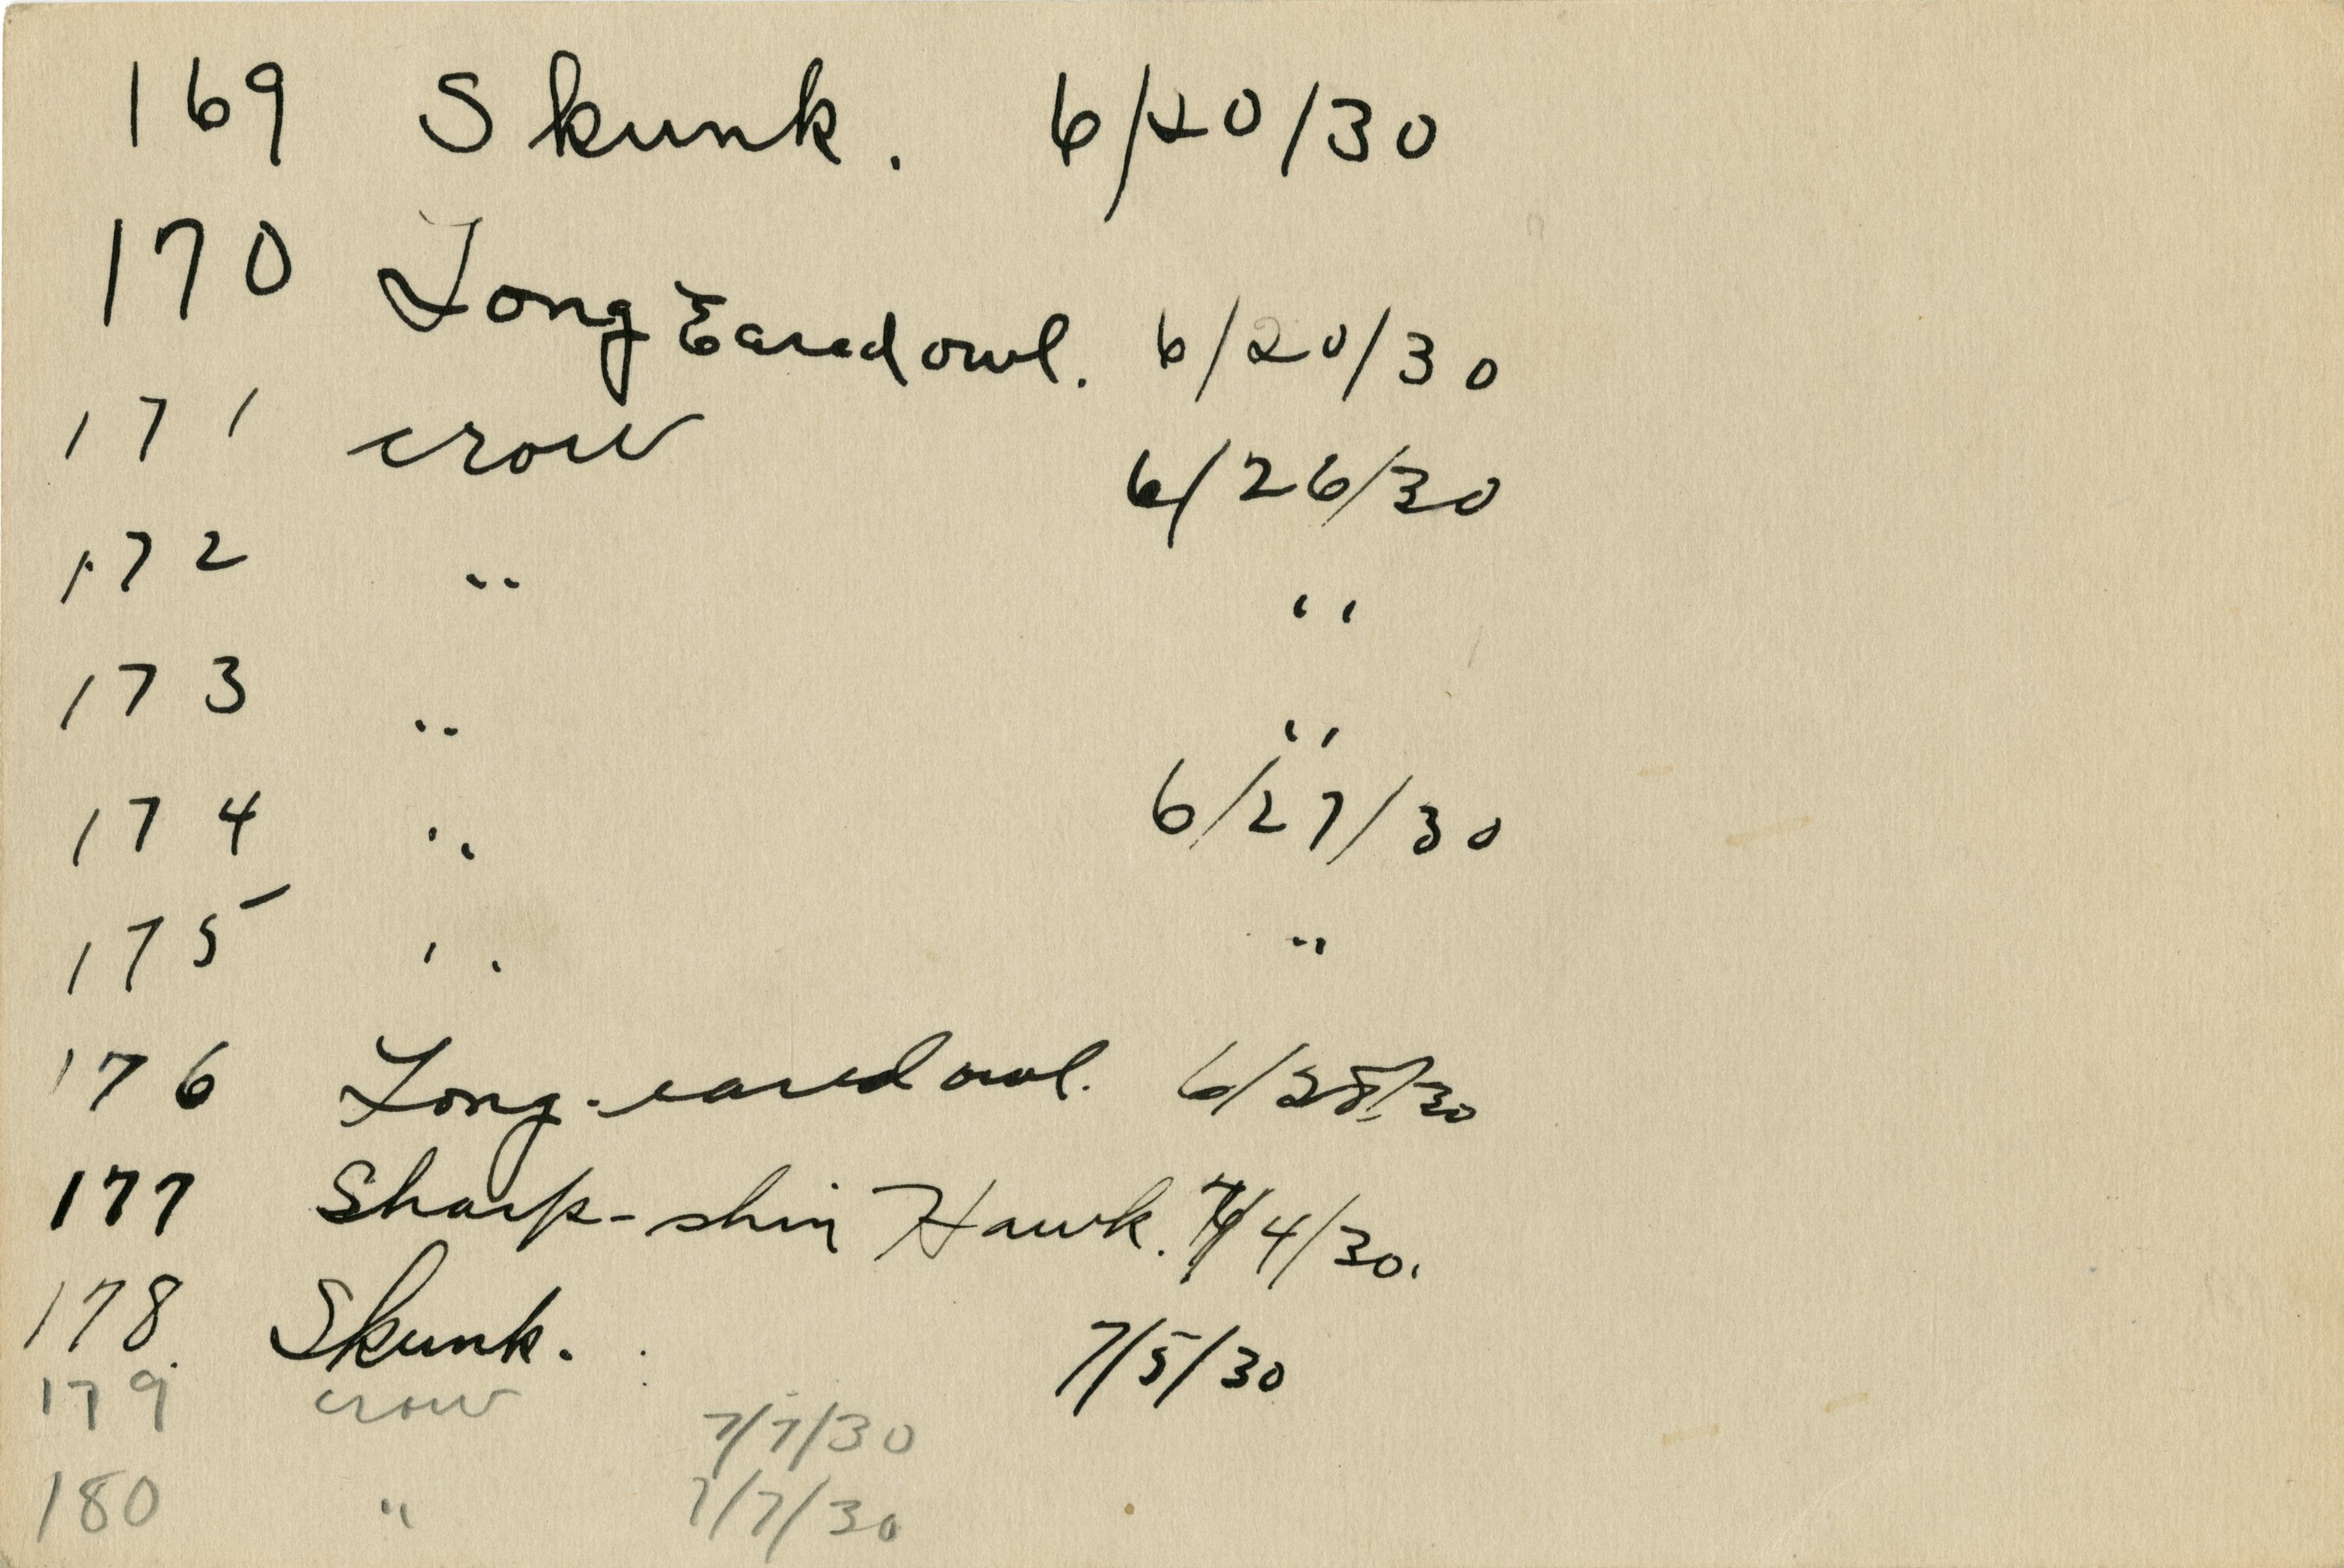 169 Skunk. 6/20/30
170 Long Eared owl. 6/20/30
171 crow 6/26/30
172 " "
173 " "
174 " 6/27/30
175 " "
176 Long-eared owl. 6/28/30
177 Sharp-shin Hawk. 7/4/30.
178 Skunk. 7/5/30
179 crow 7/7/30
180 " 7/7/30